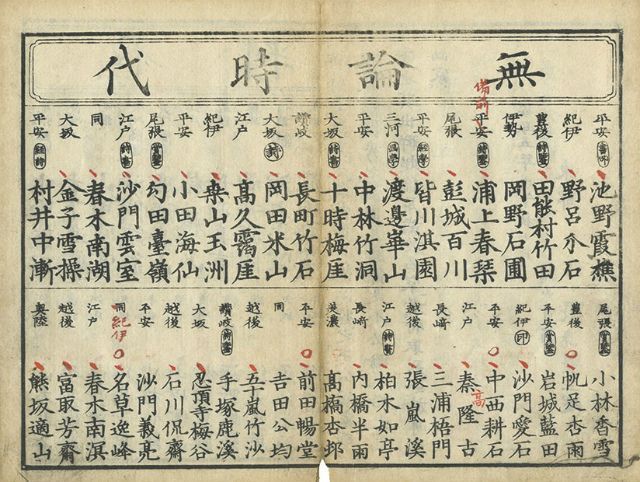 無論時代
平安 池野霞樵
紀伊 野呂介石
豊後 田能村竹田
伊勢 岡野石圃
平安 備前 浦上春琴
尾張 彭城百川
平安 皆川淇園
三河 渡邊崋山
平安 中林竹洞
大坂 十時梅厓
讃岐 長町竹石
大坂 岡田米山
江戸 高久靄厓
紀伊 桑山玉洲
平安 小田海仙
尾張 勾田臺嶺
江戸 沙門雲室
同 春木南湖
大坂 金子雪操
平安 村井中漸
尾張 小林香雪
豊後 帆足杏雨
平安 岩城藍田
紀伊 沙門愛石
平安 中西耕石
江戸 秦隆古 高
長崎 三浦梧門
越後 張嵐溪
江戸 柏木如亭
長崎 内橋半雨
美濃 高橋杏邨
平安 前田暢堂
同 吉田公均
越後 五十嵐竹沙
讃岐 手塚鹿溪
大坂 忍頂寺梅谷
越後 石川侃齋
平安 沙門義亮
同 紀伊 名草逸峰
江戸 春木南溟
越後 富取芳齋
奥陸 熊坂適山